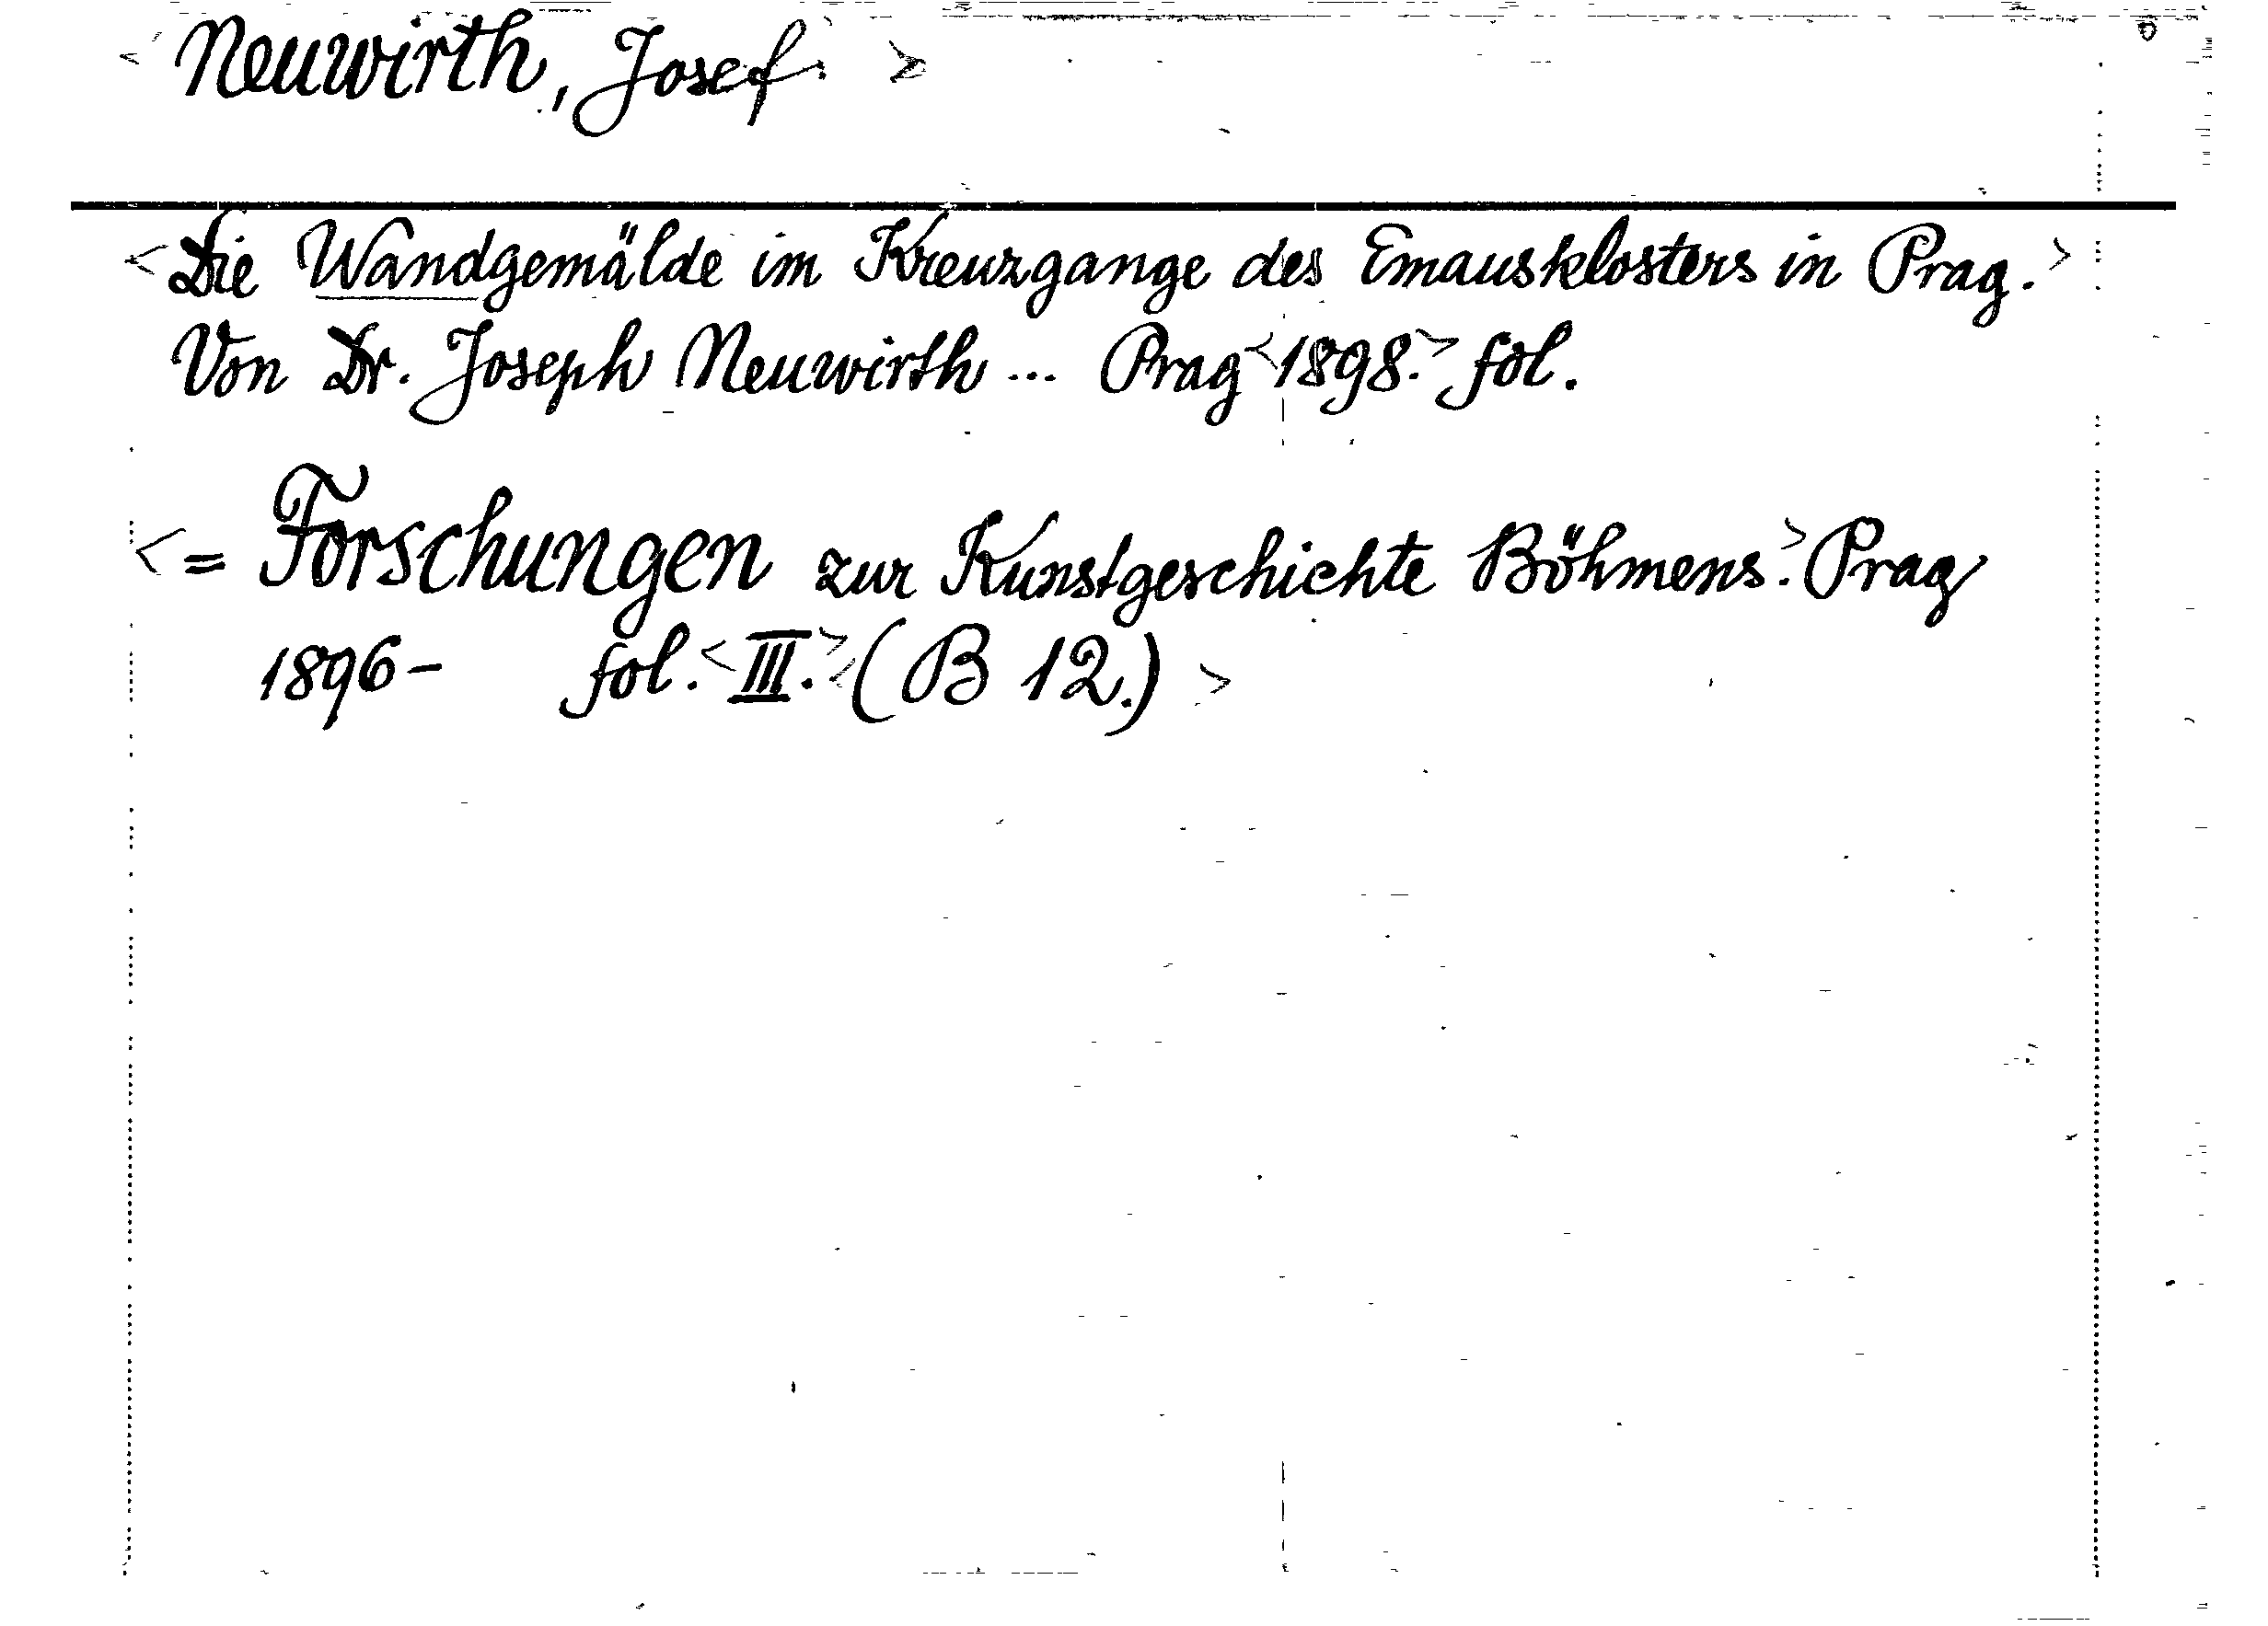 < Neuwirth, Josef. >
<Die Wandgemälde im Kreuzgange des Emausklosters in Prag.>
Von Dr. Joseph Neuwirth ... Prag <1898.> fol.
<= Forschungen zur Kunstgeschichte Böhmens.> Prag
1896- fol. <III.> <(B 12.)>